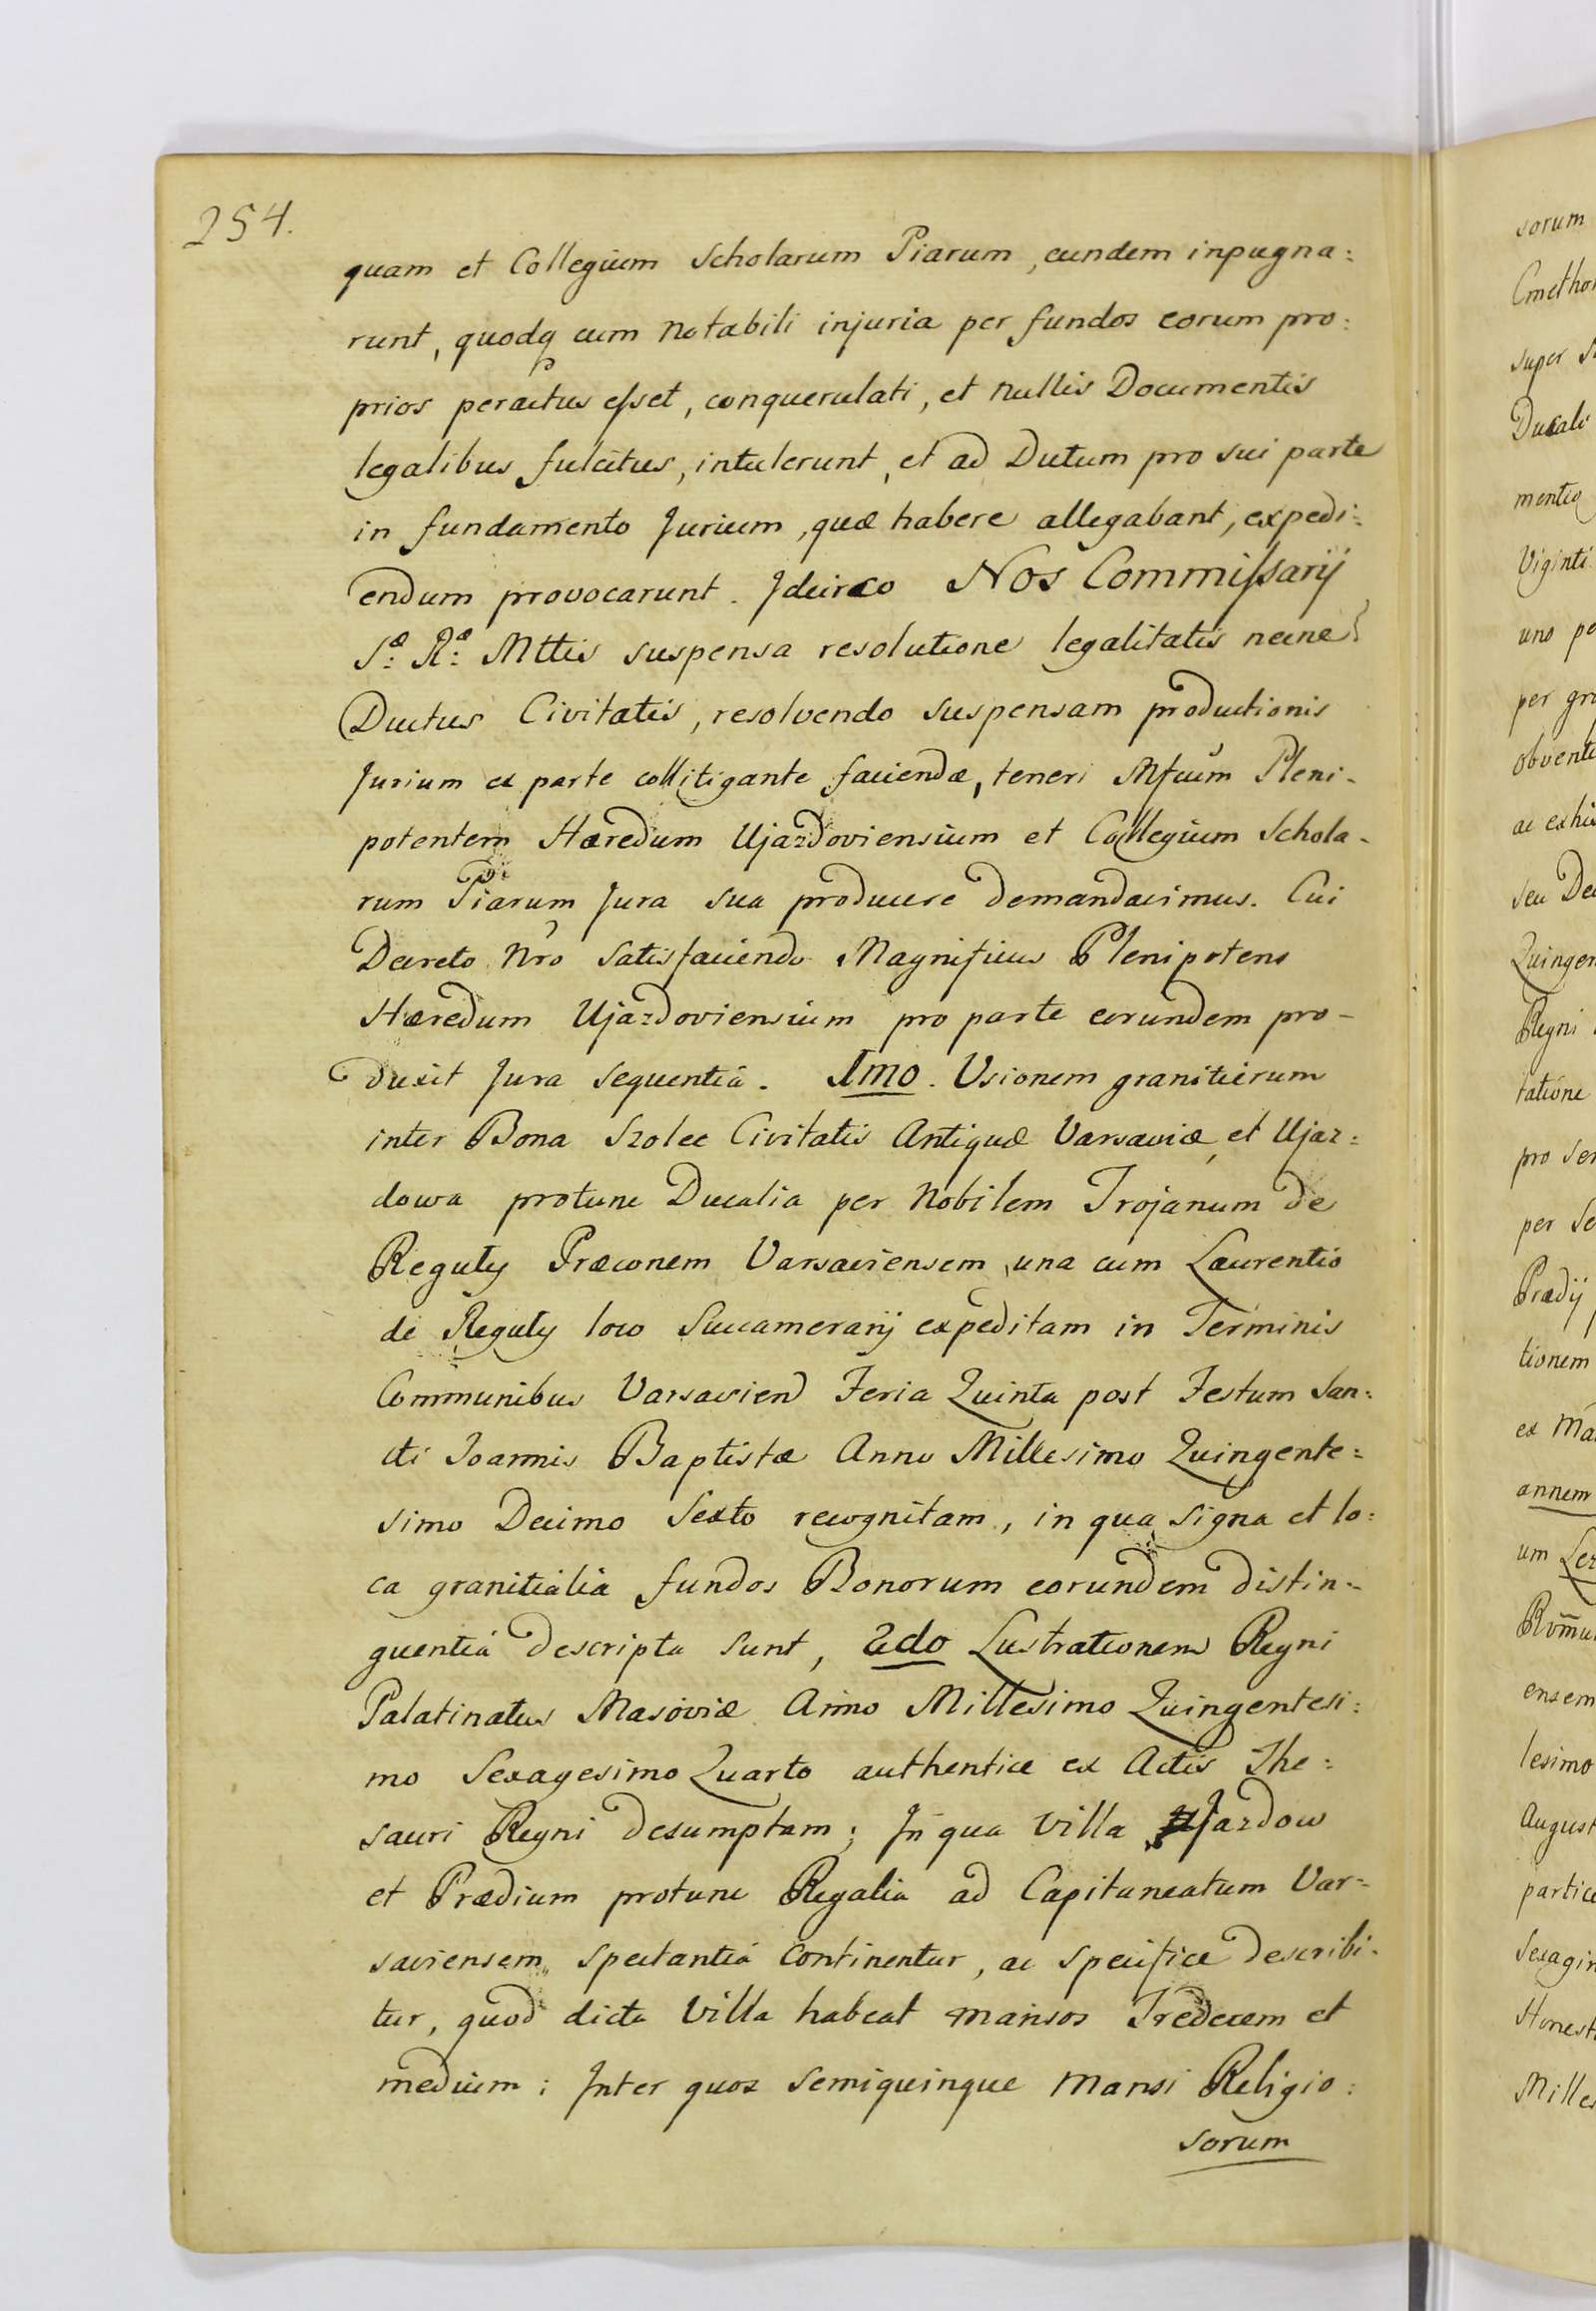 254.
quam et Collegium Scholarum Piarum, eundem inpugna:
runt, quodq cum Notabili injuria per fundos eorum pro:
prios peractus esset, conquerulati, et Nullis Documentis
legalibus fulcitus, intulerunt, et ad Dutum pro sui parte
in fundamento Jurium, quæ habere allegabant, expedi:
endum provocarunt. Jdcirco Nos Commissarij
Sæ: Ræ: Mttis suspensa resolutione legalitatis necne
Ductus Civitatis, resolvendo suspensam productionis
Jurium ex parte collitigante faciendæ, teneri Mfcum Pleni-
potentem Hæredum Ujazdoviensium et Collegium Schola-
rum Piarum Jura sua producere demandavimus. Cui
Decreto Nro satisfaciendo Magnificus Plenipotens
Hæredum Ujazdoviensium pro parte eorundem pro-
duxit Jura sequentia. Imo. Visionem granitierum
inter Bona Szolec Civitatis Antiquæ Varsaviæ, et Ujaz:
dowa protunc Ducalia per Nobilem Trojanum de
Reguły Præconem Varsaviensem, una cum Laurentio
de Reguły loco Succamerarij expeditam in Terminis
Communibus Varsavien Feria Quinta post Festum San:
cti Joannis Baptistæ Anno Millesimo Quingente:
simo Decimo Sexto recognitam, in qua signa et lo:
ca granitialia fundos Bonorum eorundem distin:
guentia descripta sunt, 2do Lustrationem Regni
Palatinatus Masoviæ Anno Millesimo Quingentesi:
mo Sexagesimo Quarto authentice ex Actis The:
sauri Regni desumptam; Jn qua Villa Jazdow
et Prædium protunc Regalia ad Capitaneatum Var:
saviensem spectantia continentur, ac specifice describi:
tur, quod dicta Villa habeat mansos Tredecem et
medium; Inter quos semiquinque Mansi Religio:
sorum
sorum
super
Ducali
Viginti
uno
per
seu
Regni
tatione
pro
per
Prædij
tionem
ex
annem
um
ensem
lesimo
August